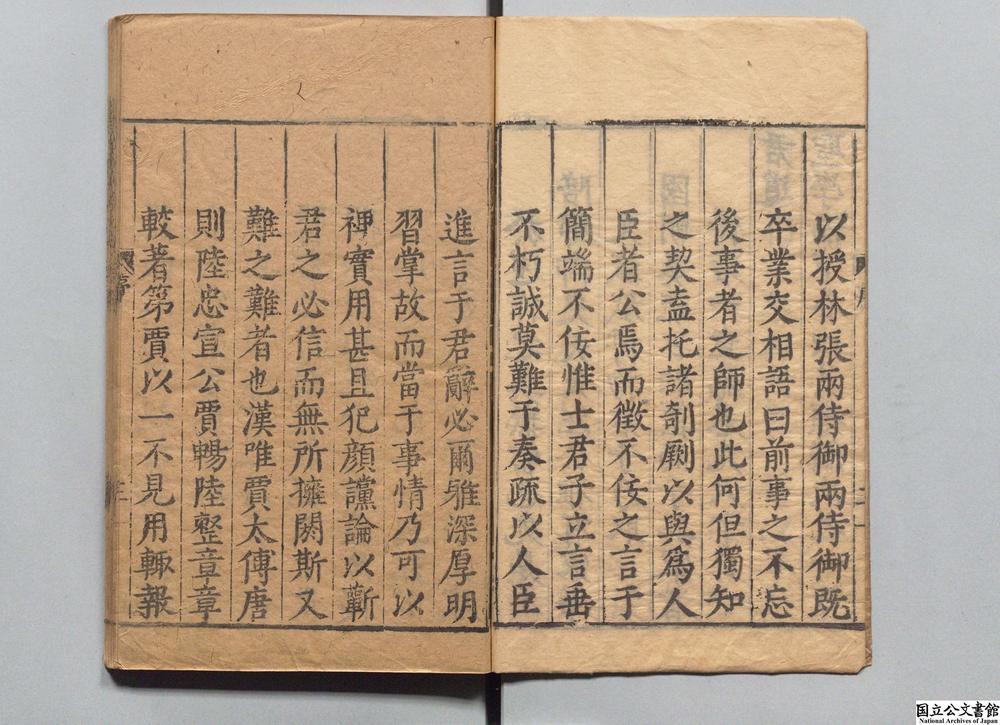 以授林張兩侍御兩侍御既
卒業交相語曰前事之不忘
後事者之師也此何但獨知
之契盖托諸剞劂以與爲人
臣者公焉而徵不佞之言于
簡端不佞惟士君子立言垂
不朽誠莫難于奏疏以人臣
進言于君辭必爾雅深厚明
習掌故而當于事情乃可以
裨實用甚且犯顔讜論以蘄
君之必信而無所擁閼斯又
難之難者也漢唯賈太傅唐
則陸忠宣公賈暢陸整章章
較著第賈以一不見用輙報
国立公文書館
National Archives of Japan